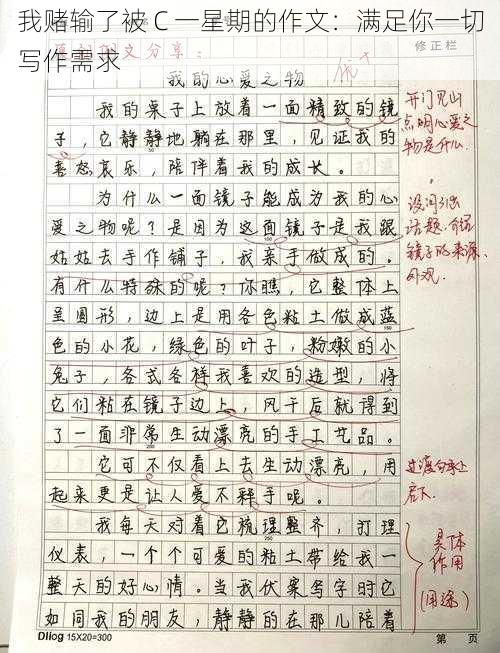 我赌输了被 C 一星期的作文：满足你一切
写作需求
文分享：
修正栏
优+
我的心爱之物
我的桌子上放着一面精致的镜
子，它静静地躺在那里，见证我的
喜怒哀乐，陪伴着我的成长。
为什么一面镜子能成为我的心
爱之物呢？是因为这面镜子是我跟
姑姑去手作铺子，我亲手做成的。
有什么特殊的呢？你瞧，它整体上
呈圆形，边上是用各色粘土做成蓝
色的小花，绿色的叶子，粉嫩的小
兔子，各式各样我喜欢的造型，将
它们粘在镜子边上，风干后就得到
了一面非常生动漂亮的手工艺品。
它可不仅看上去生动漂亮，用
起来更是让人爱不释手呢。
我每天对着它梳理整齐，打理
仪表，一个个可爱的粘土带给我一
整天的好心情。当我伏案写字时它
如同我的朋友，静静的在那儿陪着
开门见山
点明心爱之
物是什么.
设问引出
话题.介绍
镜子的来源、
外观.
过渡句承上
启下.
具体
作用
(用途)
Dliog 15X20=300
第 页